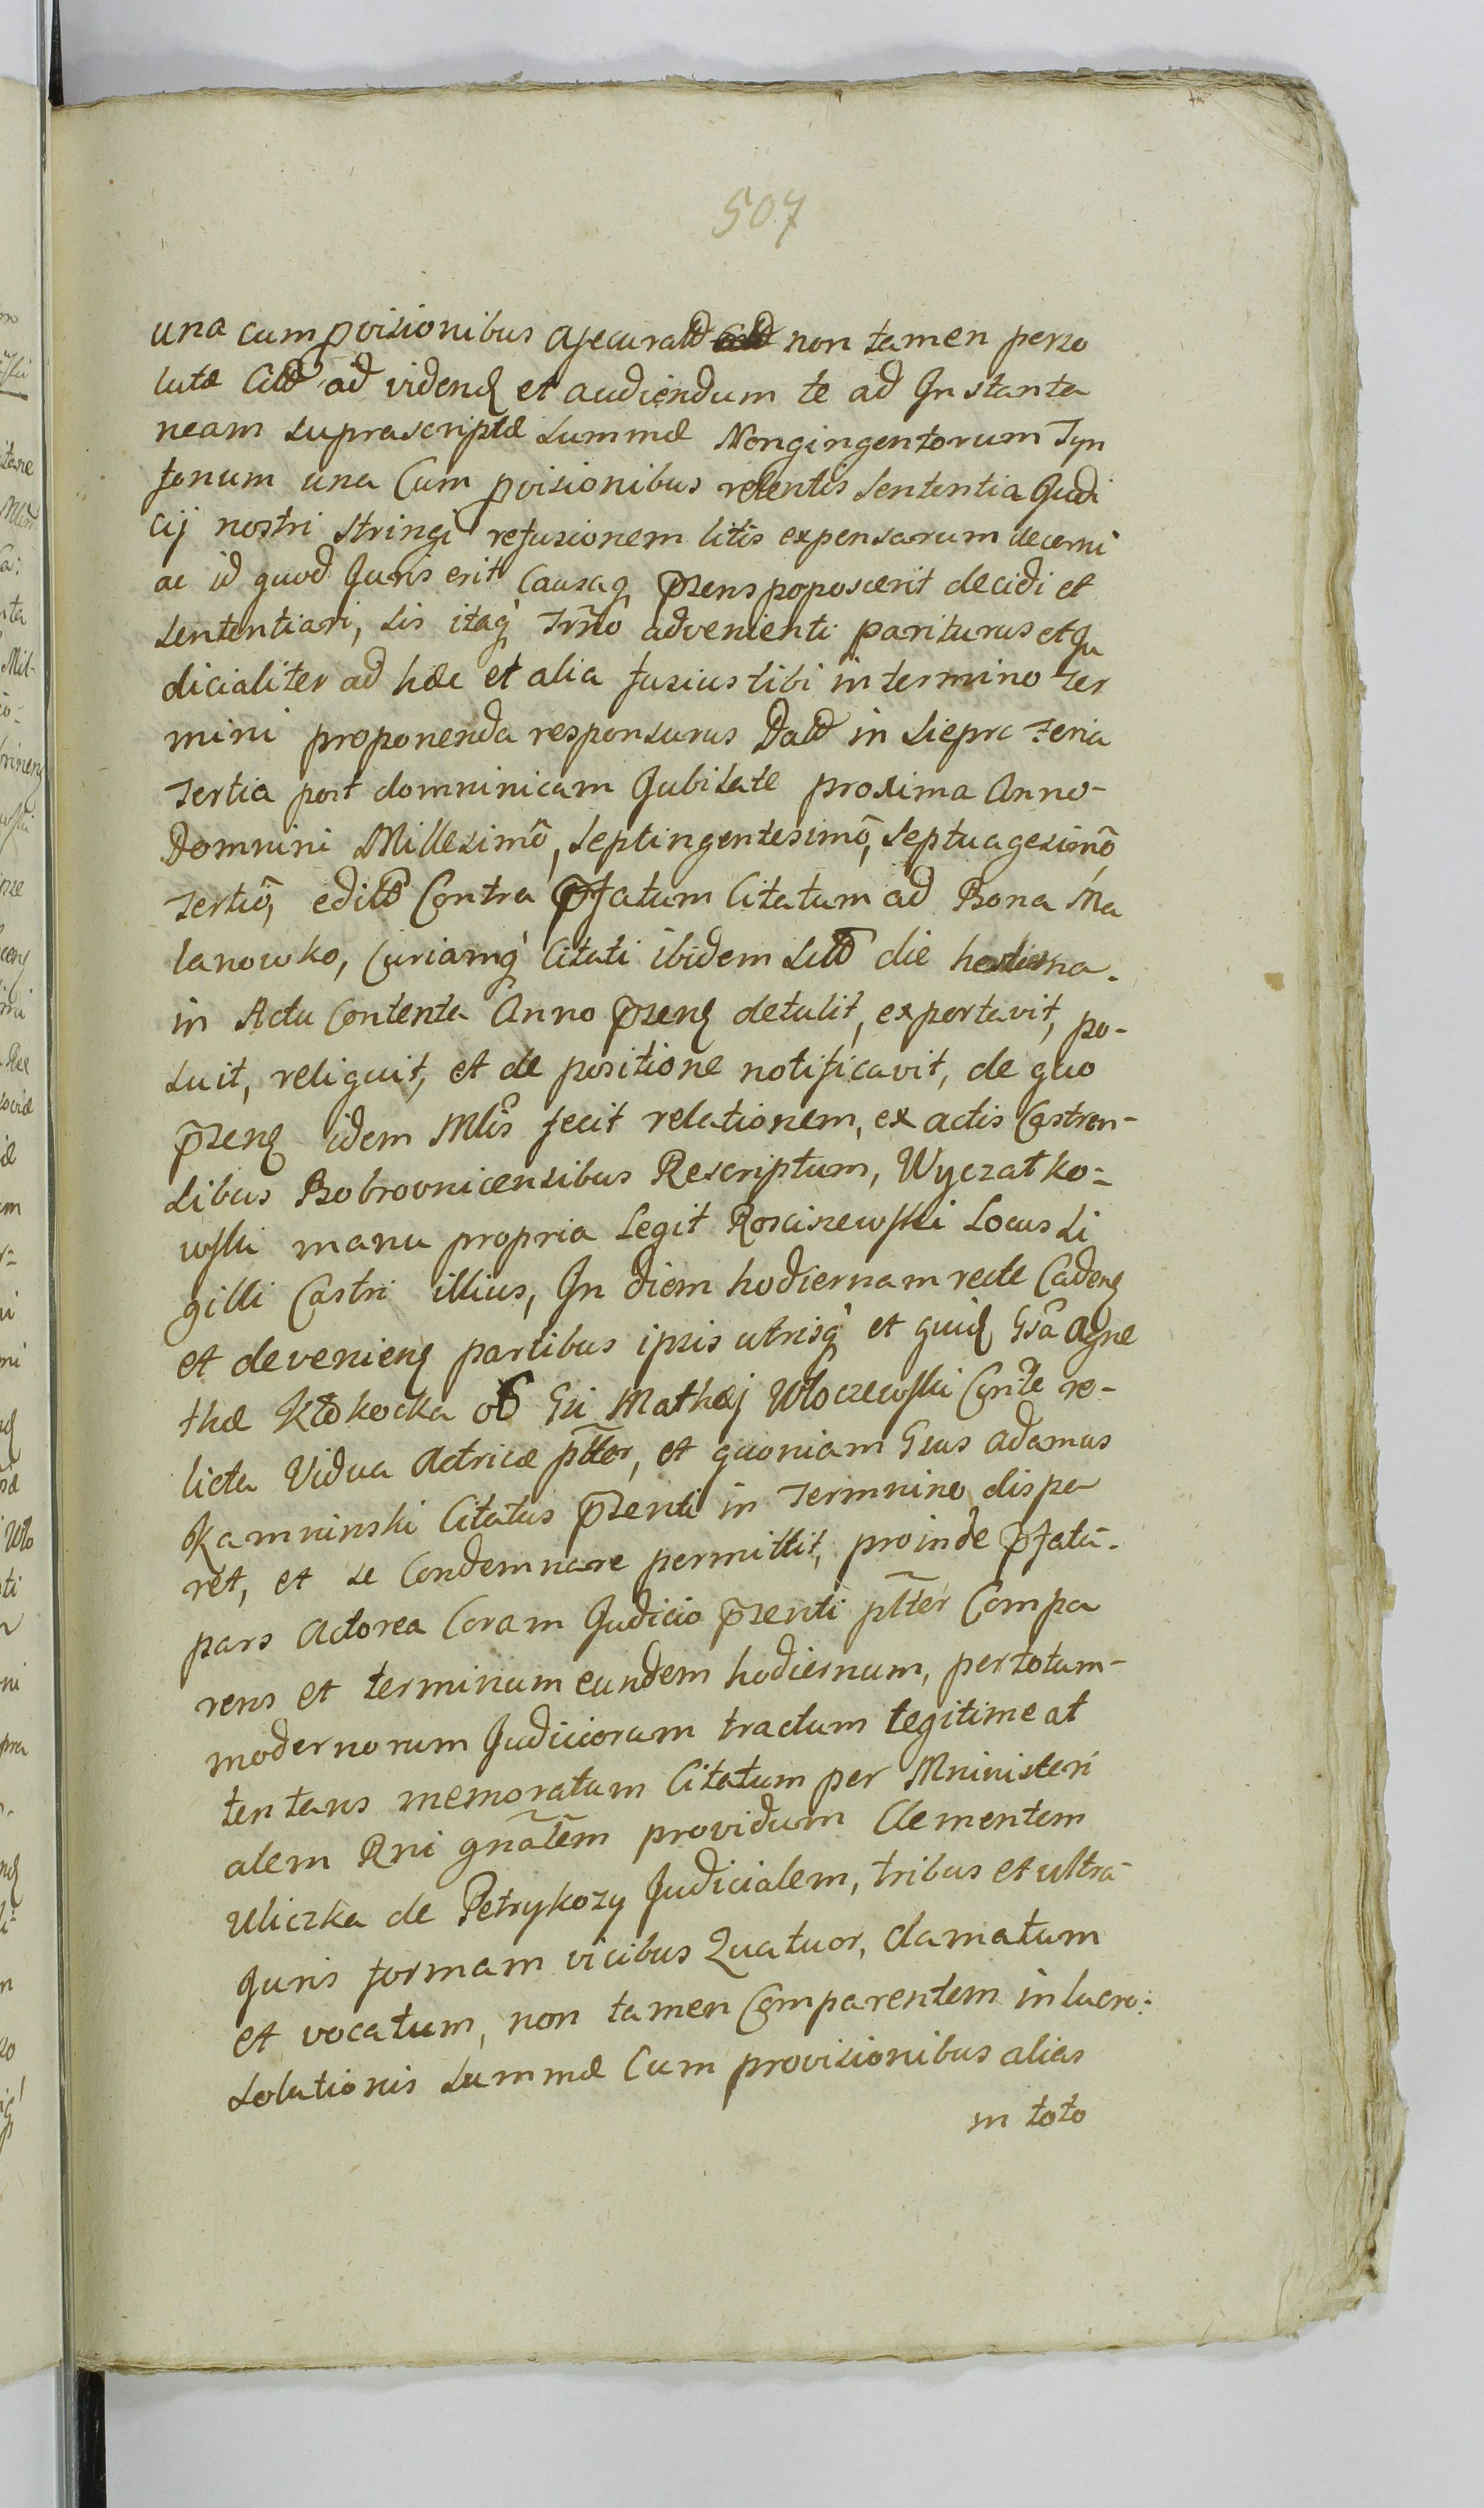 507
una cum pvisionibus assecuratæ non tamen perso
lutæ Citt ad vidend et audiendum te ad Instanta
neam suprascriptæ summæ Nongingentorum Tyn
fonum una Cum pvisionibus retentis sententia Judi
cij nostri stringi refusionem litis expensarum decerni
ac id quod Juris erit Causaq p̃sens poposcerit decidi et
sententiari, sis itaq Trño advenienti pariturus et Ju
dicialiter ad hæc et alia fusius tibi in termino ter
mini proponenda responsurus Datt in Siepre Feria
Tertia post domninicam Jubilate proxima Anno-
Domnini Millesimõ, Septingentesimõ, Septuagesimõ
Tertiõ, editt Contra p̃fatum Citatum ad Bona Ma
lanowko, Curiamq Citati ibidem sitt die hodierna.
in Actu Contenta Anno p̃sens detulit, exportavit, po-
suit, reliquit, et de positione notificavit, de quo
p̃sens idem Mlis fecit relationem, ex actis Castren-
sibus Bobrovnicensibus Rescriptum, Wyczałko-
wski manu propria Legit Rosciszewski Locus Si
gilli Castri illius, In diem hodiernam recte Cadens
et deveniens partibus ipsis utrisq et quid Gsa Agne
thæ Kłokocka oб Gsi Mathæj Włoczewski Consle re-
licta Vidua Actricæ pltter, et quoniam Gsus Adamus
Kamninski Citatus p̃senti in Termnino dispa
ret, et se Condemnare permittit, proinde p̃fatã.
pars Actorea Coram Judicio p̃senti pltter Compa
rens et terminum eundem hodiernum, per totum-
modernorum Judiciorum tractum legitime at
tentans memoratum Citatum per Mninisteri
alem Rni gñalem providum Clementem
Uliczka de Petrykozy Judicialem, tribus et ultra-
Juris formam vicibus Quatuor, clamatum
et vocatum, non tamen Comparentem in lucro:
solutionis summæ Cum provisionibus alias
in toto